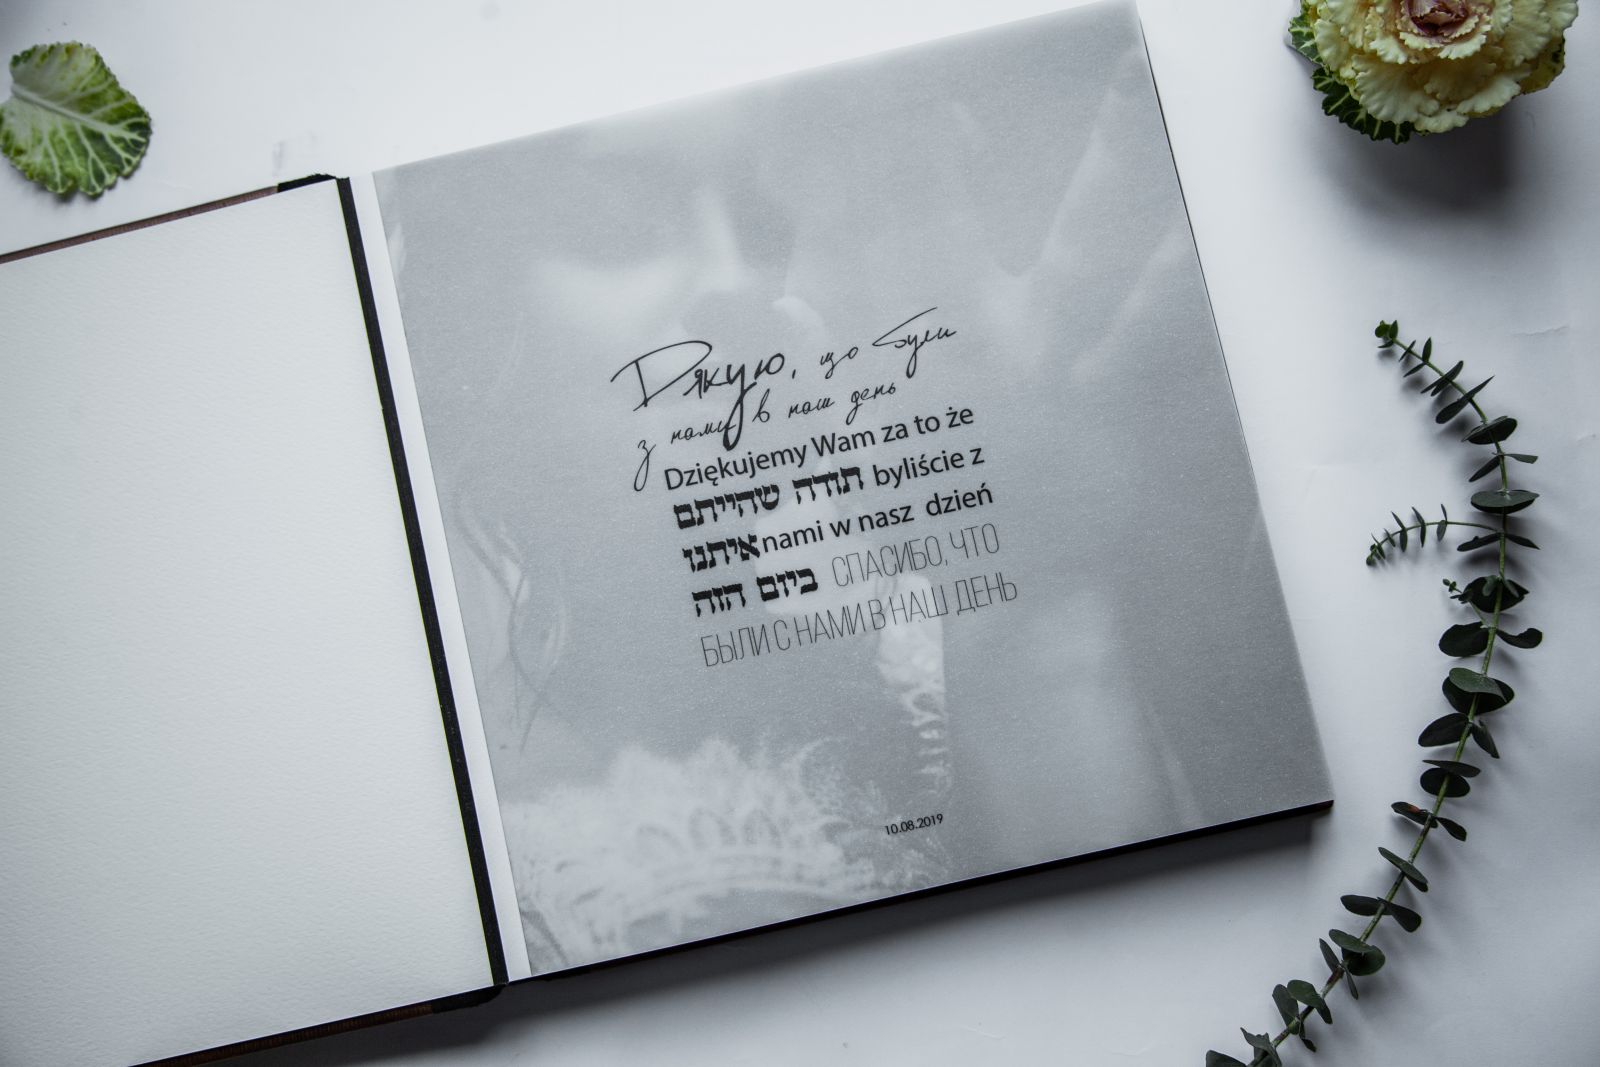 Дякую, що були
з нами в наш день
Dziękujemy Wam za to że
תודה שהייתם byliście z
איתנו nami w nasz dzień
ביום הזה СПАСИБО, ЧТО
БЫЛИ С НАМИ В НАШ ДЕНЬ
10.08.2019